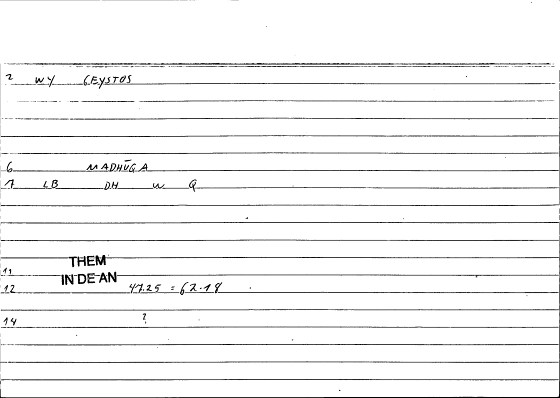 2 WY GEYSTOS
6 MADHŪGA
7 LB DH W Q
THEM
11
IN DE AN
12 47.25 = 62.18
14 ?